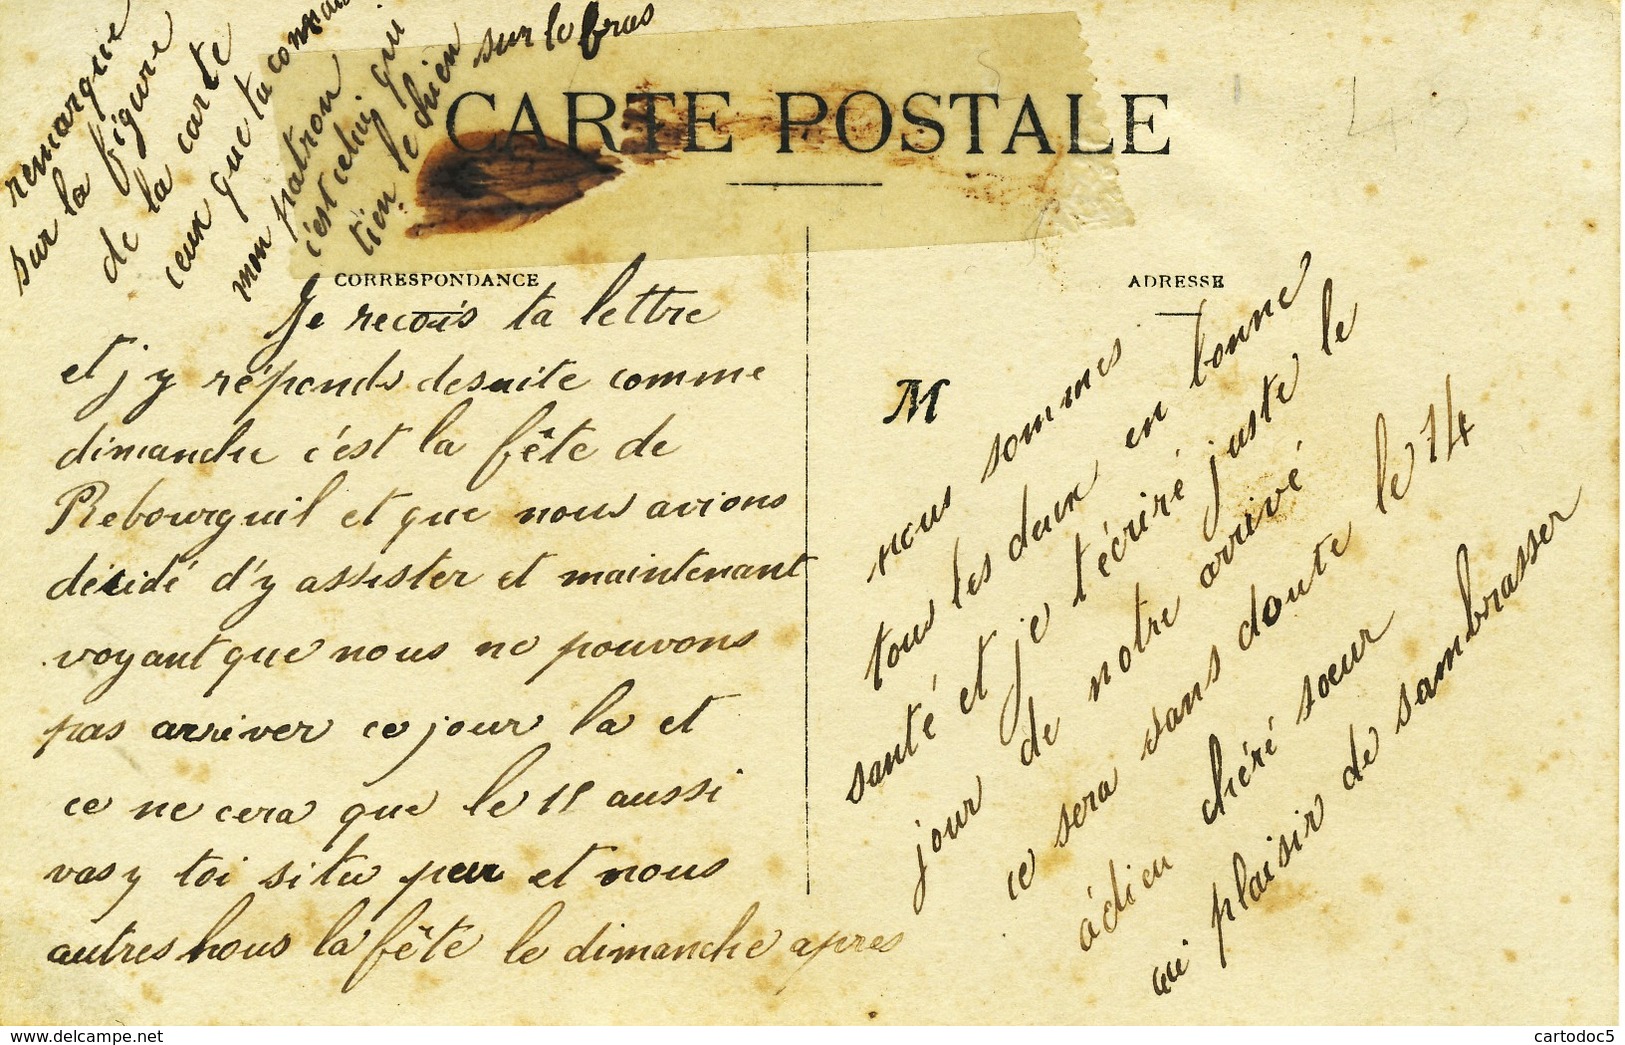 remarque
sur la figure
de la carte
ceux que tu connais
mon patron
c'est celui qui
tien le chien sur le bras
CARTE POSTALE
CORRESPONDANCE
Je recois ta lettre
et j y réponds desuite comme
dimanche c'est la fête de
Rebourguil et que nous avions
décidé d'y assister et maintenant
voyant que nous ne pouvons
pas arriver ce jour la et
ce ne cera que le 15 aussi
vas y toi si tu peu et nous
autres hous la fête le dimanche apres
ADRESSE
M
nous sommes
tous les deux en bonne
santé et je t'écriré juste le
jour de notre arrivé
ce sera sans doute le 14
adieu chéré sœur
au plaisir de sambrasser
www.delcampe.net
cartodoc5